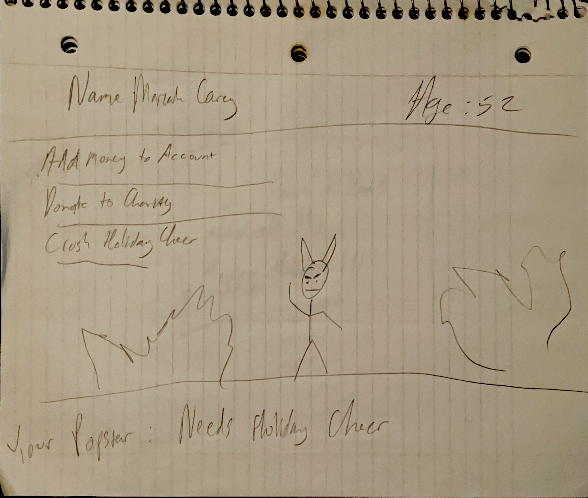 Name Mariah Carey
Age : 52
Add Money to Account
Donate to Charity
Crush Holiday Cheer
Your Popstar : Needs Holiday Cheer